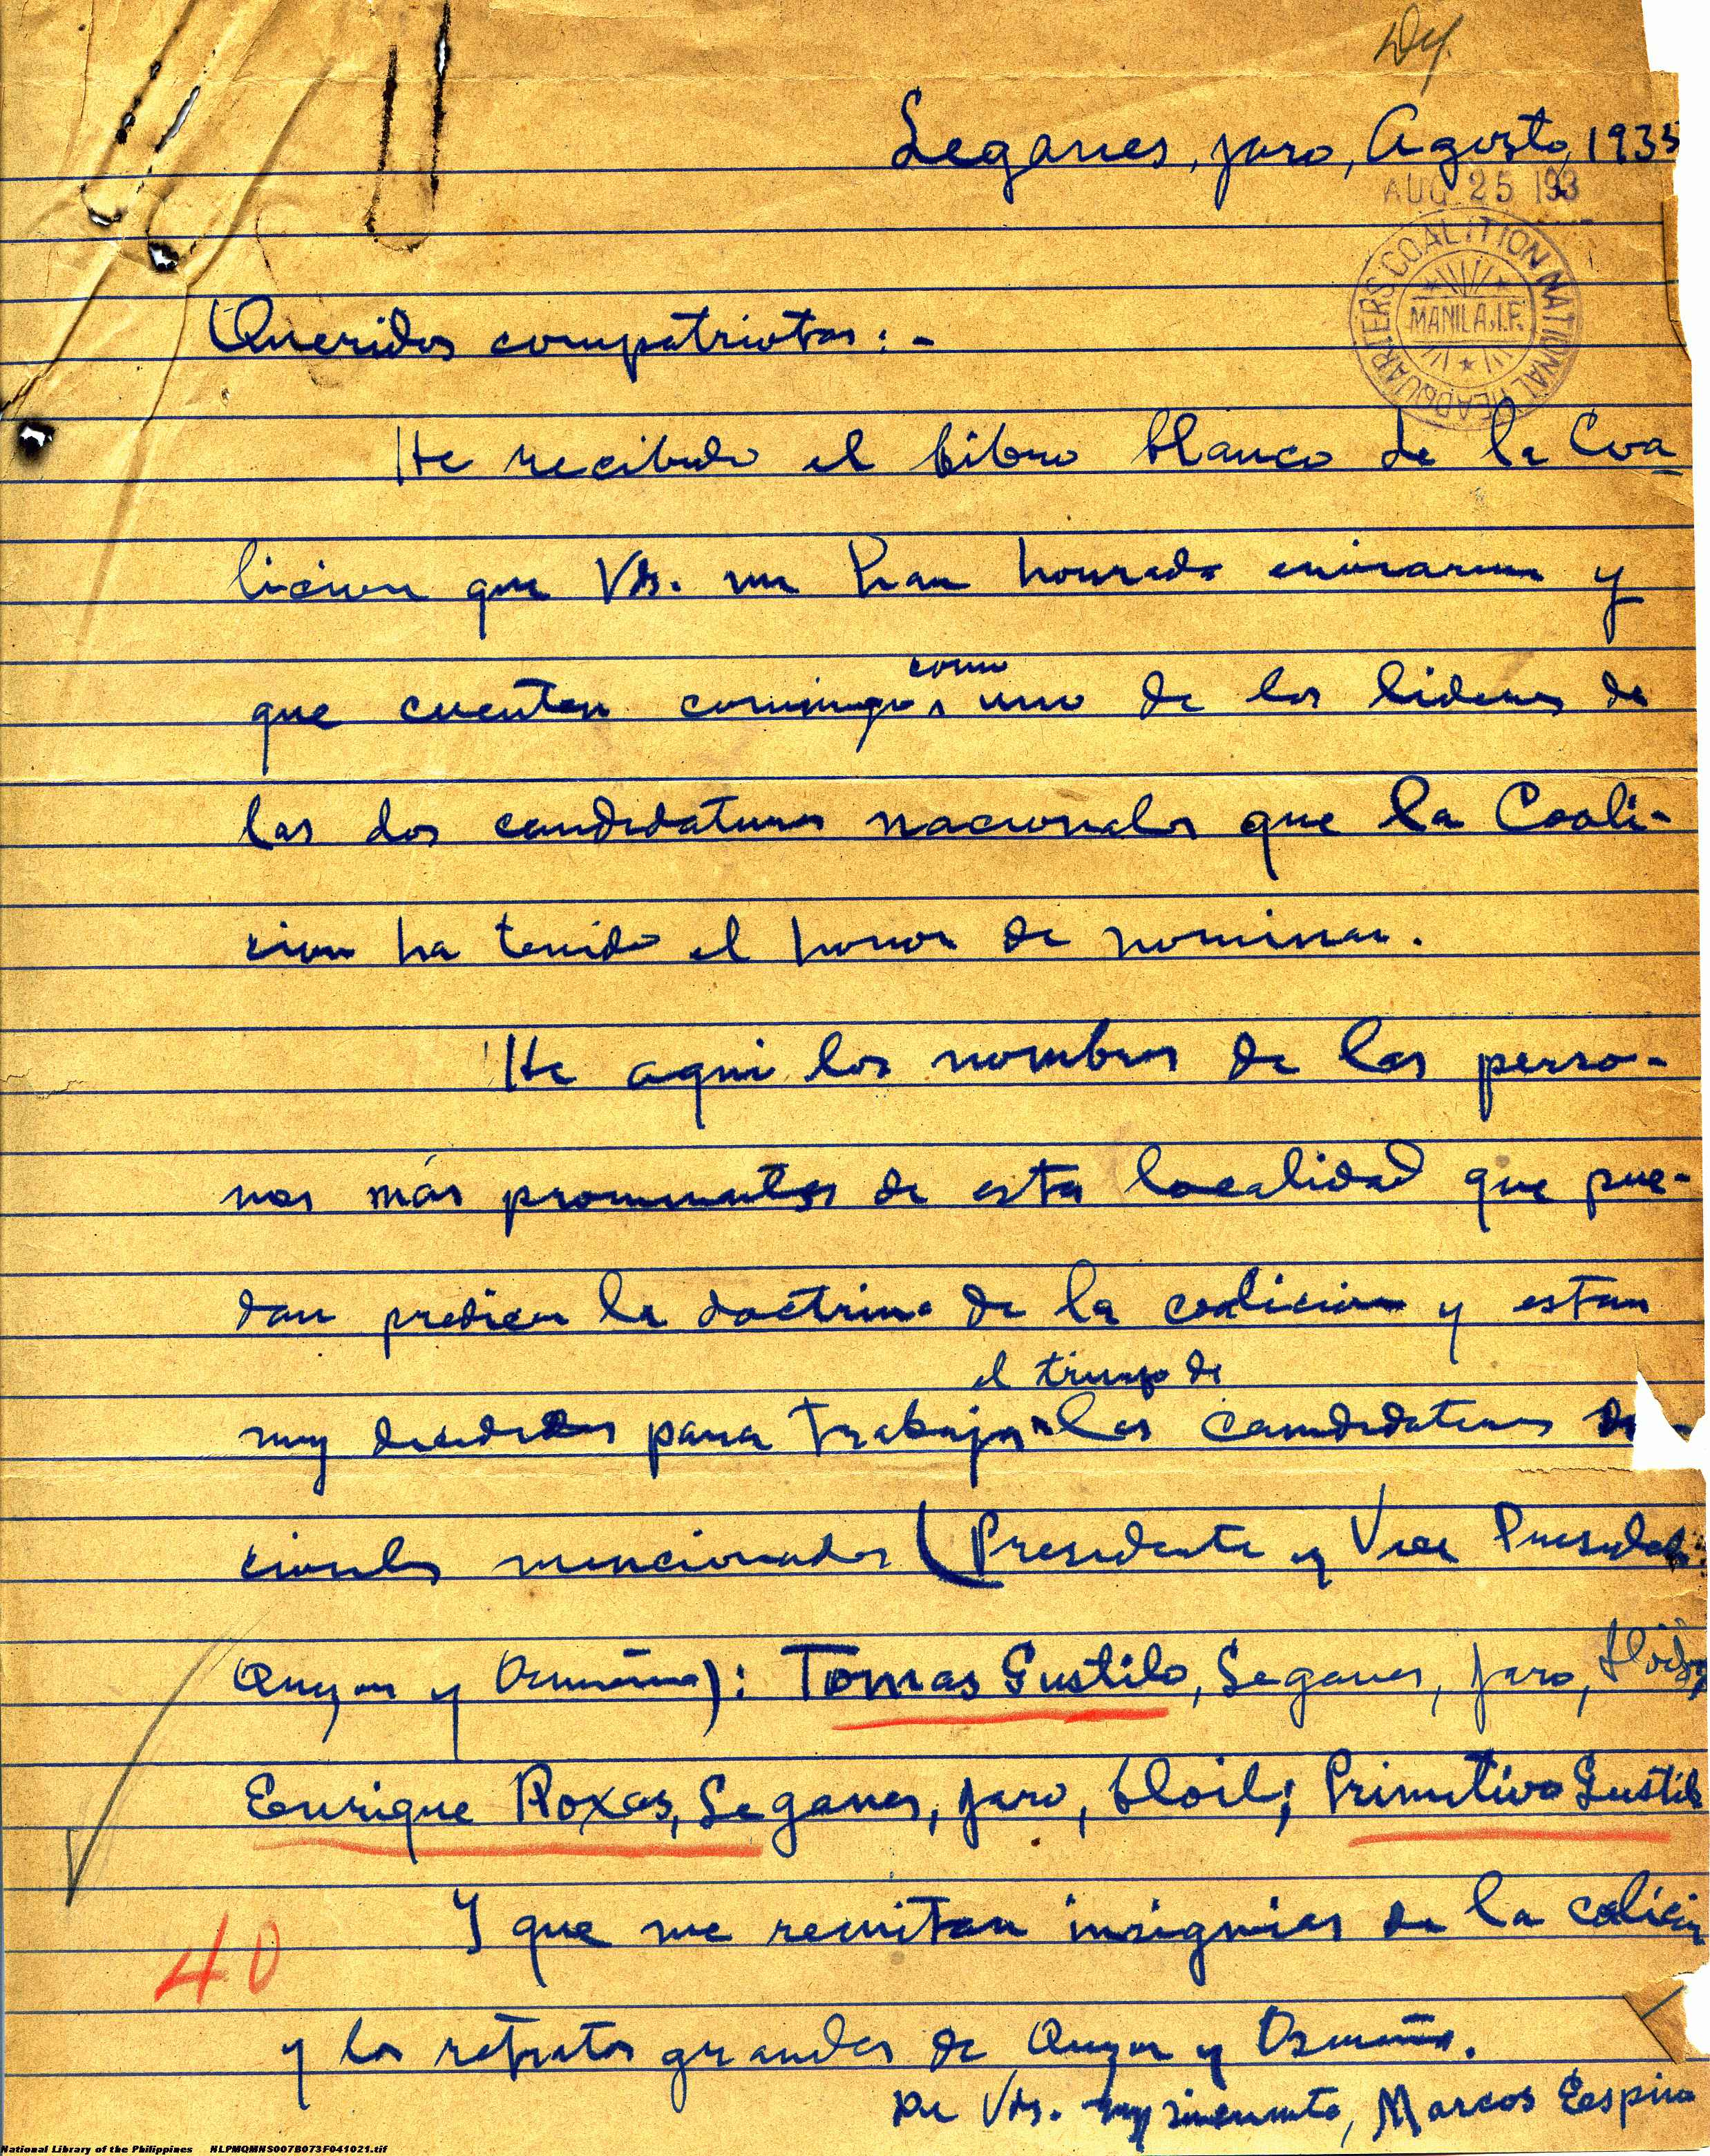 Leganes, Jaro, Agosto, 1935
AUG 25 193
COALITION NATIONAL HEADQUARTERS
MANILA, I.F.
Queridos compatriotas: -
He recibido el libro blanco de la Coa
licion que Vds. me han honrado enviarme y
que cuenten conmigo como uno de los lideres de
las dos candidaturas nacionales que la Coali-
cion ha tenido el honor de nominar.
He aqui los nombres de las perso-
nas más prominentes de esta localidad que pue-
dan predicar la doctrina de la coalicion y estan
el triunfo de
muy decididos para trabajar las candidaturas
cionales mencionadas (Presidente y Vice Presidente:
Quezon y Osmeña): Tomas Gustilo, Leganes, Jaro, Iloilo,
Enrique Roxas, Leganes, Jaro, Iloilo; Primitivo Gustilo
Y que me remitan insignias de la colicion
40
y los retratos grandes de Quezon y Osmeña.
De Vds. muy sinceramente, Marcos Espino
National Library of the Philippines NLPMQMNS007B073F041021.tif